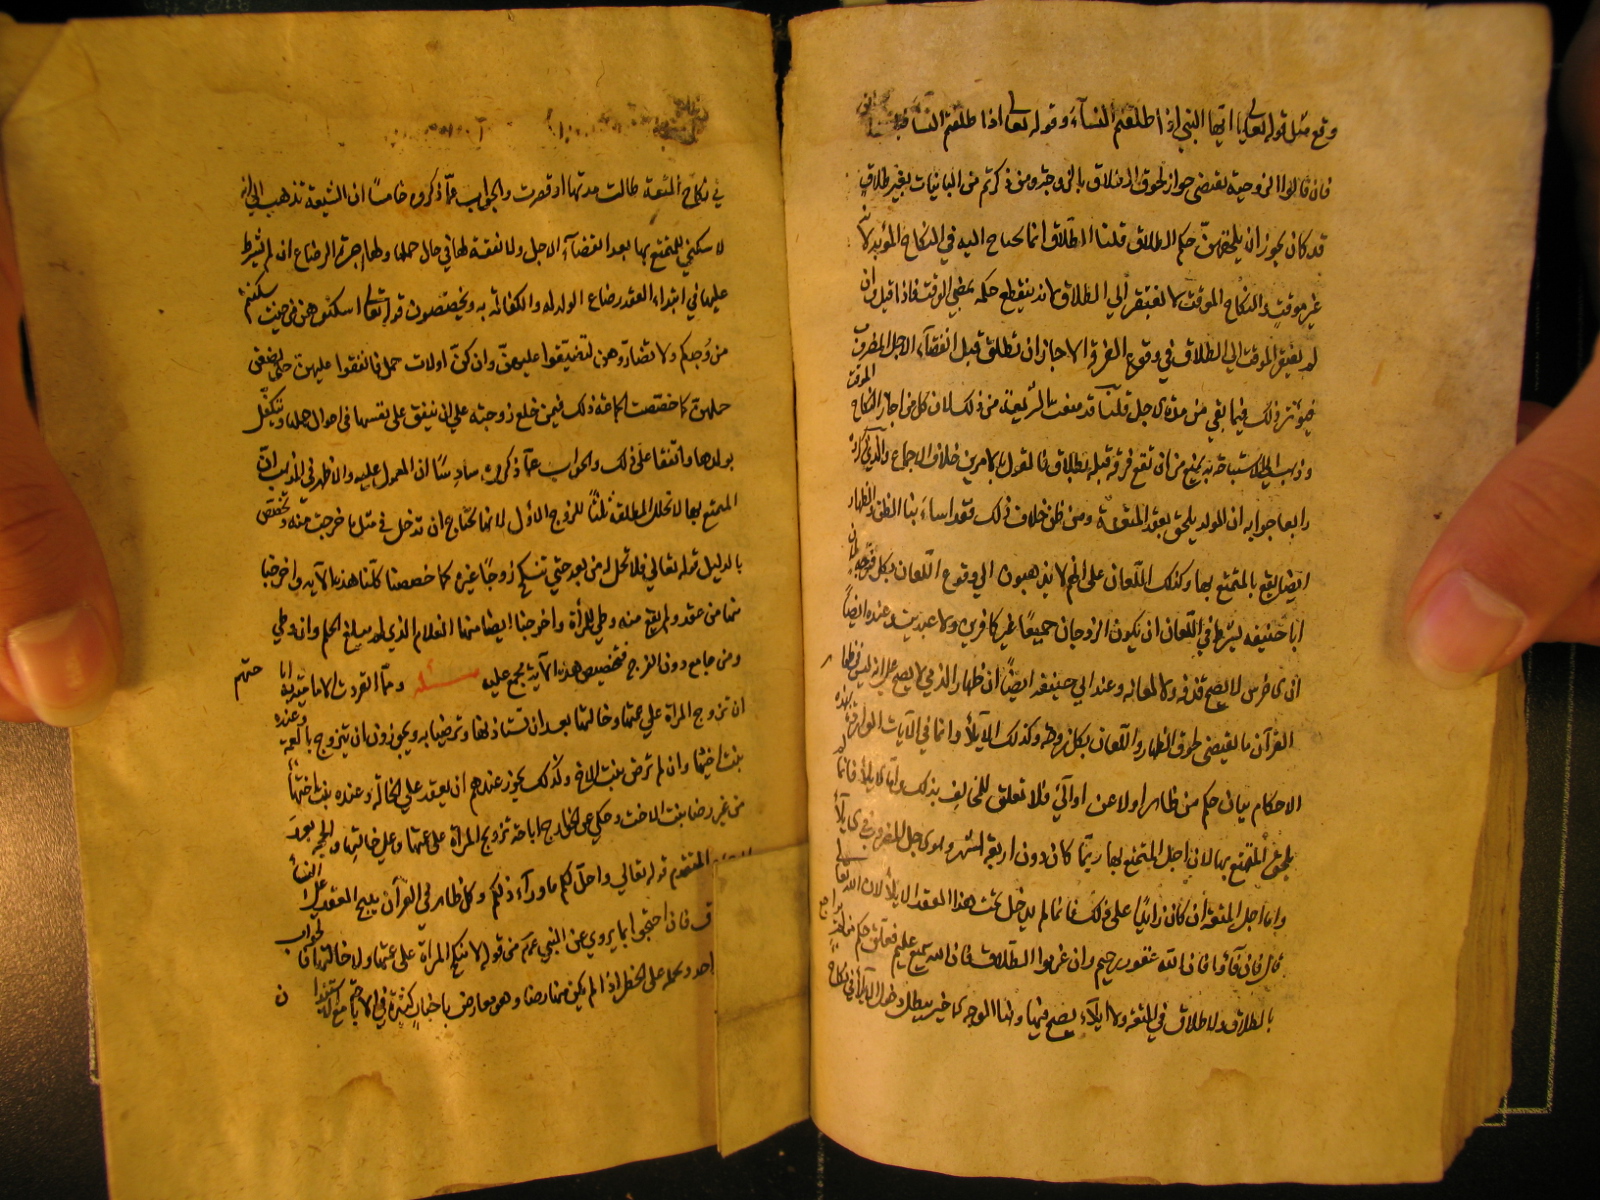 وقع مثل قوله تعالى يا ايها النبي اذا طلقتم النسآء وقوله تعالى اذا طلقتم النسآ
فان قالوا الزوجية تقتضى جواز لحوق الطلاق بالزوجة ومن ذكرتم من البائنات بغير طلاق
قد كان يجوز ان يلحقهن حكم الطلاق قلنا الطلاق انما يحتاج اليه في النكاح المؤبد لانه
غير موقت والنكاح الموقت لا يفتقر الى الطلاق لانه ينقطع حكمه بمضي الوقت فاذا قيل وان
لم يفتقر الموقت الى الطلاق في وقوع الفرقة الا جاز ان تطلق قبل انقضآء الاجل المضروب
فيؤثر ذلك فيما بقي من مدة الاجل قلنا قد منعت الشريعة من ذلك لان كل من اجاز النكاح الموقت
وذهب الى الاستباحة به يمنع من ان تقع فرقة قبله بطلاق فالقول بالامرين خلاف الاجماع والذي ذكروه
رابعا جوابه ان الولد يلحق بعقد المتعة ومن ظن خلاف ذلك فقد اساء بنا الظن والظهار
ايضا يقع بالمتمتع بها وكذلك اللعان على انهم لا يذهبون الى وقوع اللعان بكل زوجة لان
ابا حنيفه يشرط في اللعان ان يكون الزوجان جميعًا غير كافرين ولا عبدين وعنده ايضًا
ان الاخرس لا يصح قذفه ولا لعانه وعند ابي حنيفه ايضًا ان ظهار الذمي لا يصح على انه ليس في ظاهر
القرآن ما يقتضى لحوق الظهار واللعان بكل زوجة وكذلك الايلأ وانما في الآيات الواردة بهذه
الاحكام بيان حكم من ظاهر او لاعن او آلي فلا تعلق للمخالف بذلك واما الايلأ فانما لم
يلحق المتمتع بها لان اجل المتمتع بها ربما كان دون اربعة اشهر وهو الاجل المضروب في الايلأ
واما اجل المتعة ان كان زايدًا على ذلك فانما لم يدخل تحت هذا العقد الايلأ لان الله تعالى
قال فان فآؤا فان الله غفور رحيم وان عزموا الطلاق فان الله سميع عليم فعلق حكم من لم يراجع
بالطلاق ولا طلاق في المتعة ولا ايلآء يصح فيها وهذا الوجه الاخير يبطل دخول الايلآ في نكاح
في نكاح المتعة طالت مدتها او قصرت والجواب عمّا ذكروه خامسًا ان الشيعة تذهب الى انه
لا سكنى للمتمتع بها بعد انقضآء الاجل ولا نفقة لها في حال حملها ولها اجرة الرضاع ان لم يشرط
عليها في ابتداء العقد رضاع الولد له والكفالة به ويخصصون قوله تعالى اسكنوهن من حيث سكنتم
من وجدكم ولا تضاروهن لتضيقوا عليهن وان كن اولات حمل فانفقوا عليهن حتى يضعن
حملهن كما خصصت الجماعة ذلك فيمن خلع زوجته على ان ينفق على نفسها في احوال حملها ويتكفل
بولدها واتفقا على ذلك والجواب عمّا ذكروه سادسًا ان المعمول عليه والاظهر في المذهب ان
المتمتع بها لا تحلل المطلقة ثلثًا للزوج الاول لانها تحتاج ان تدخل في مثل ما خرجت منه وتخصص
بالدليل قوله تعالى فلا تحل له من بعد حتى تنكح زوجًا غيره كما خصصنا كلنا هذه الآية واخرجنا
منها من عقد ولم يقع منه وطي للمرأة واخرجنا ايضا منها الغلام الذي لم يبلغ الحلم وان وطي
ومن جامع دون الفرج فتخصيص هذه الآية مجمع عليه مسئلة ومما انفردت الامامية به اباحتهم
ان تزوج المرأة على عمتها وخالتها بعد ان تستاذنها وترضيا به ويجوزون ان يتزوج بالعمة وعنده
بنت اخيها وان لم ترض بنت الاخ وكذلك يجوز عندهم ان يعقد على الخالة وعنده بنت اختها
من غير رضا بنت الاخت وحكي عن الخوارج اباحة تزويج المرأة على عمتها وعلى خالتها والحجة بعد
المتقدم قوله تعالى واحل لكم ما ورآء ذلكم وكل ظاهر في القرآن يبيح العقد على النسآ
فان احتجوا بما يروي عن النبي عم من قوله لا تنكح المرأة على عمتها ولا خالتها فالجواب
احد ونحمله على الحظر اذا لم يكن منهما رضا وهو معارض باخبار كثيرة في الاباحة مع الاستيذا ن